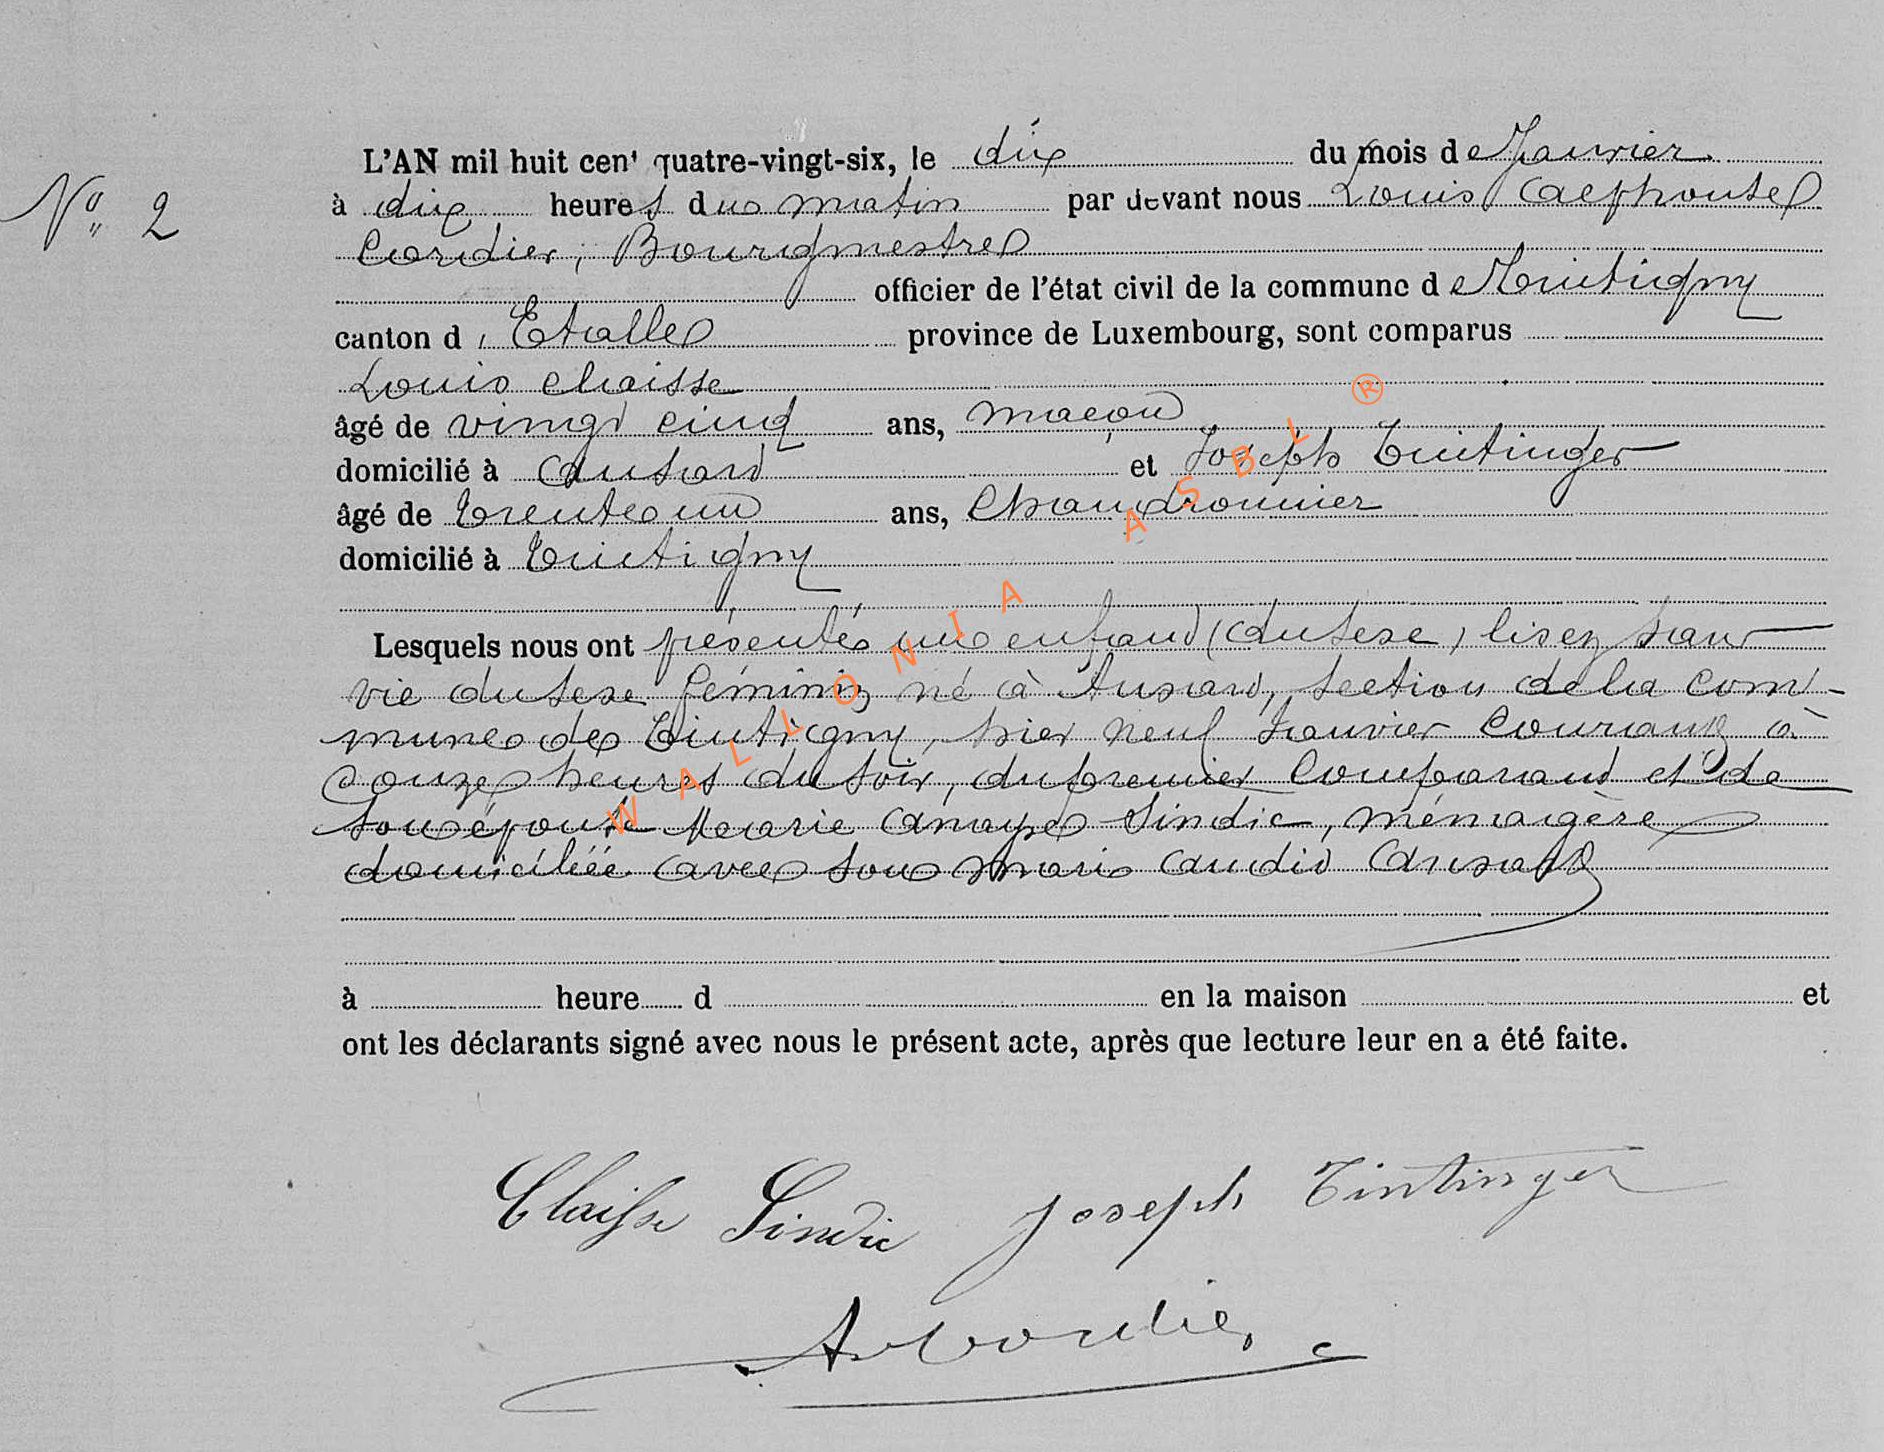 L'AN mil huit cent quatre-vingt-six, le dix du mois de Janvier
N° 2
à dix heures du matin par devant nous Louis Alphonse
Cordier, Bourgmestre
officier de l'état civil de la commune de Tintigny
canton d'Etalle province de Luxembourg, sont comparus
Louis Claisse
âgé de vingt cinq ans, maçon
domicilié à Ansart et Joseph Tintinger
âgé de trente un ans, Chaudronnier
domicilié à Tintigny
Lesquels nous ont présenté un enfant (du sexe) lisez sans
vie du sexe féminin né à Ansart, section de la com-
mune de Tintigny, hier neuf Janvier courant à
onze heures du soir, du premier Comparant et de
son épouse Marie Sindic, ménagère
domiciliée avec son mari audit Ansart
à heure d en la maison et
ont les déclarants signé avec nous le présent acte, après que lecture leur en a été faite.
Claisse Sindic Joseph Tintinger
A Cordier
WALLONIA ASBL ®